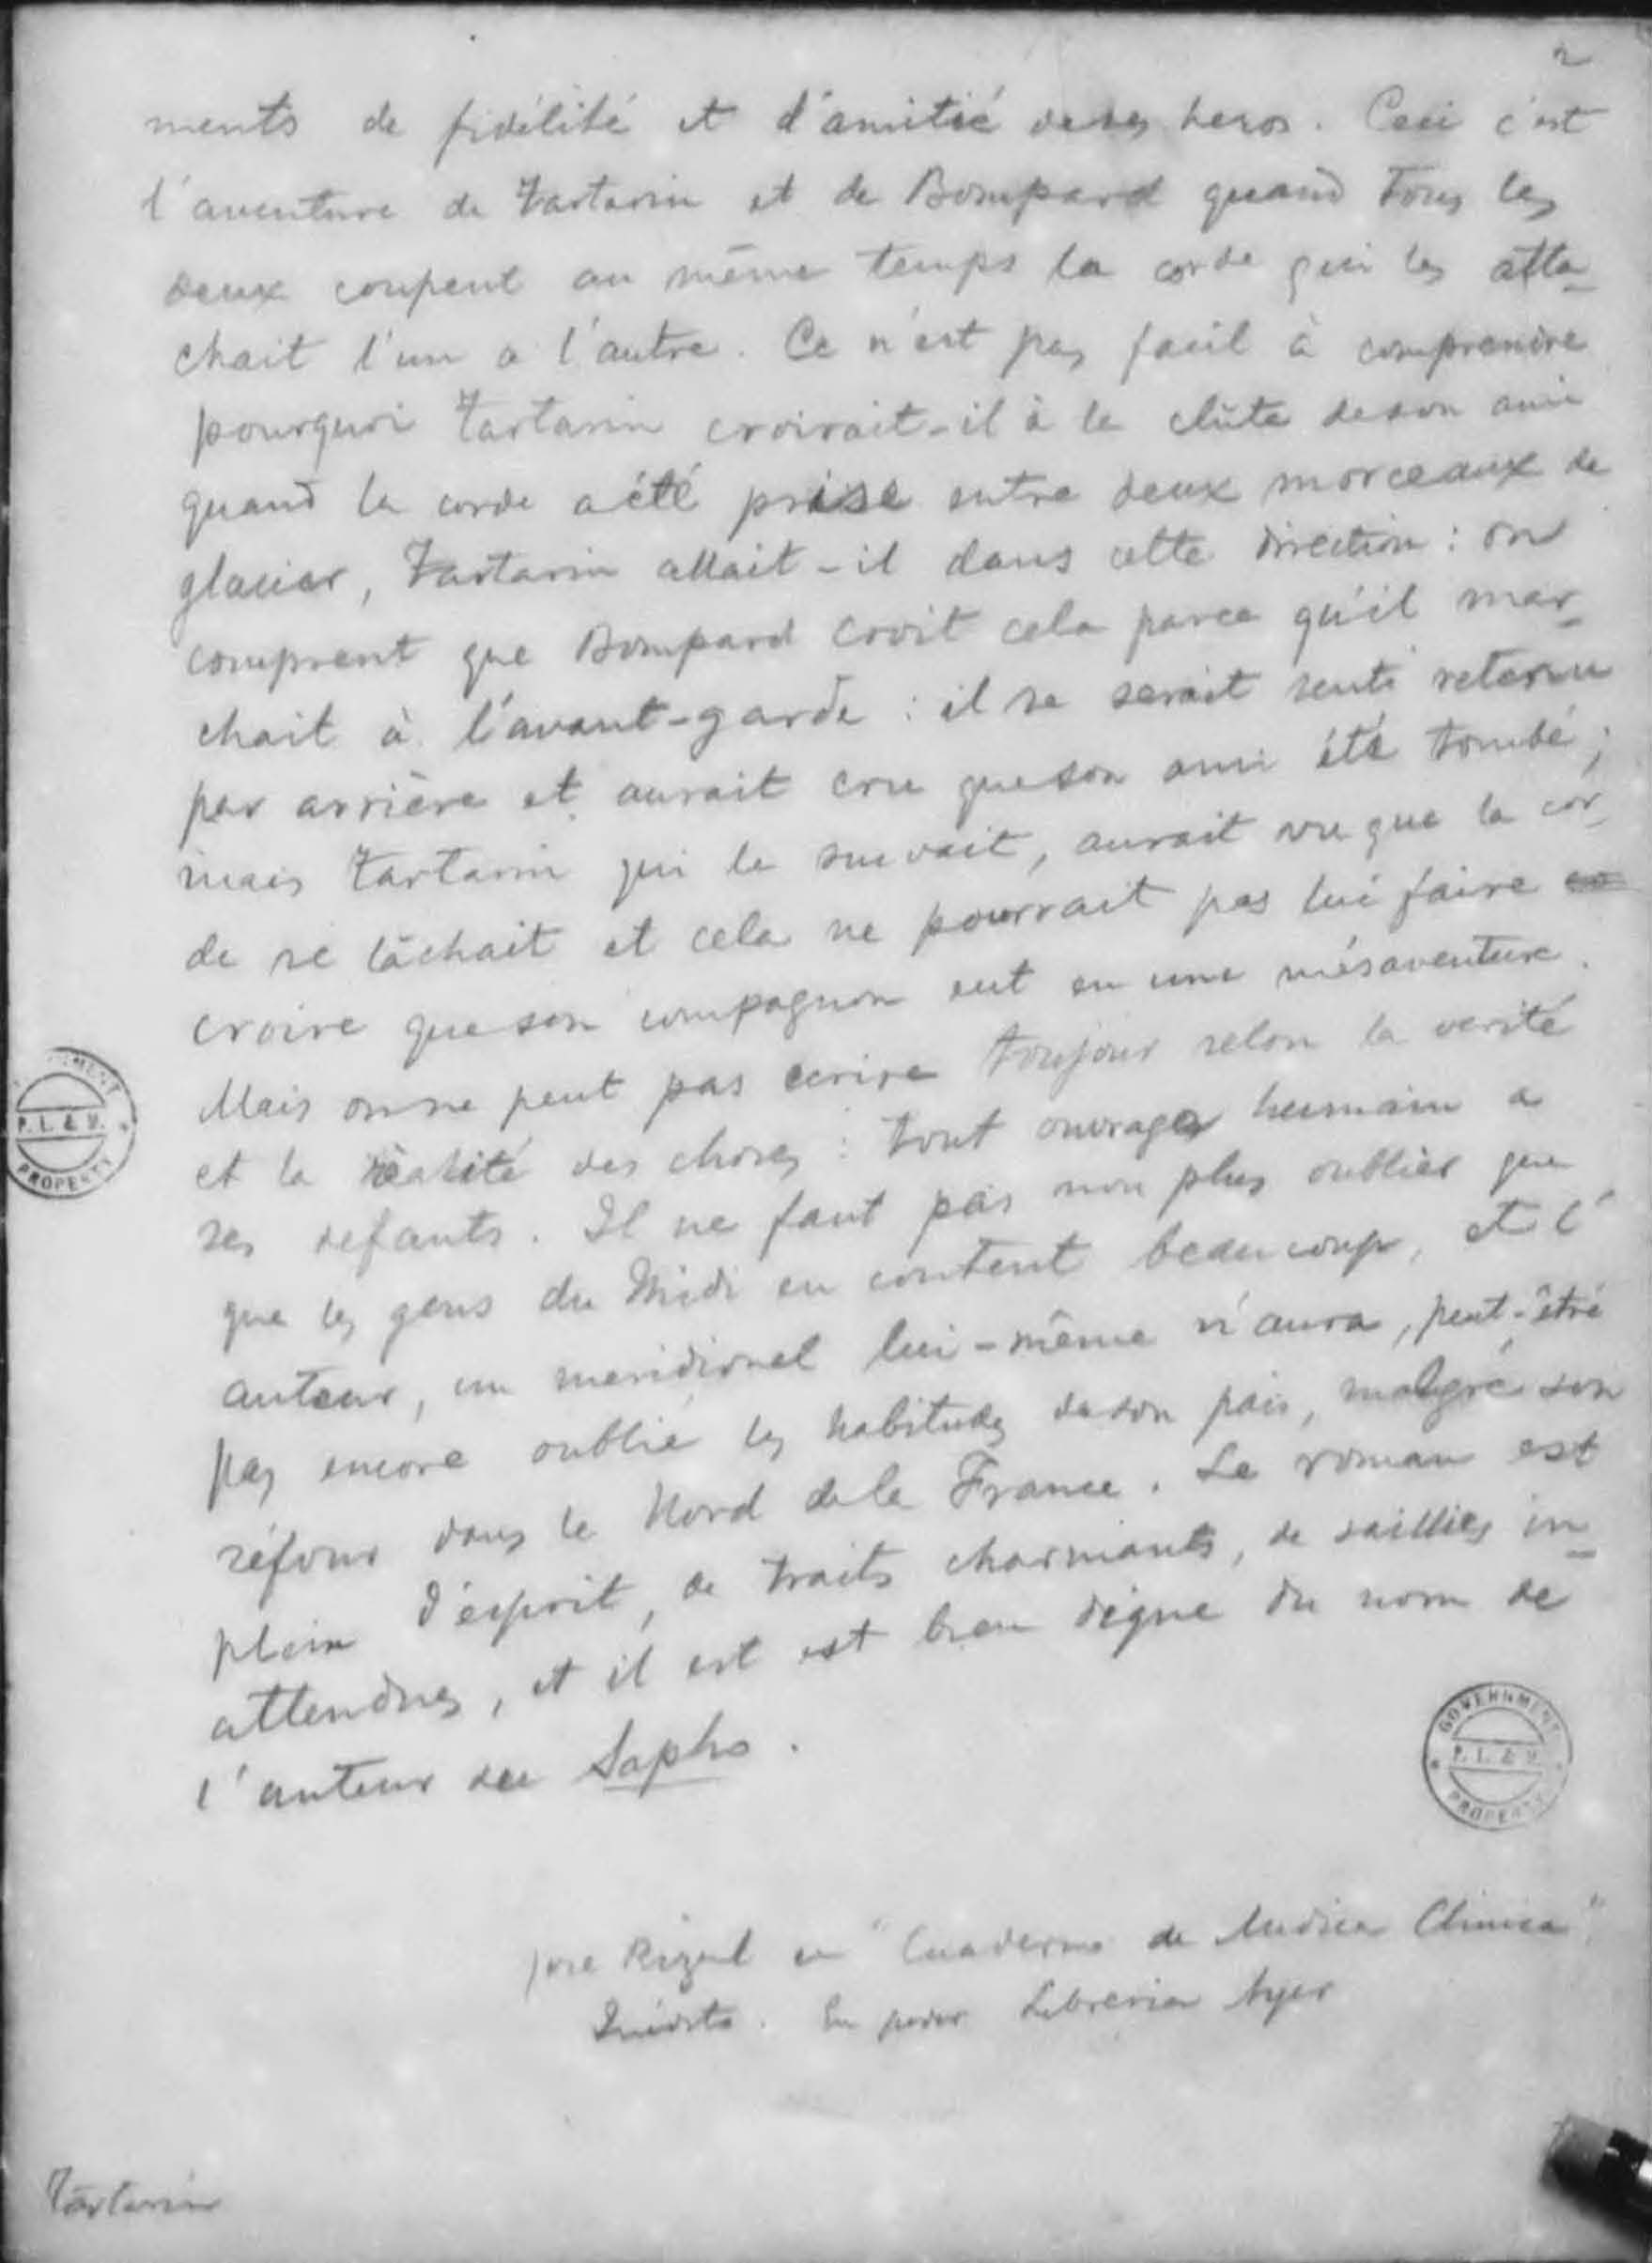 2
ments de fidélité et d'amitié de ses heros. Ceci c'est
l'aventure de Tartarin et de Bompard quand tous les
deux coupent au même temps la corde qui les atta-
chait l'un a l'autre. Ce n'est pas facil à comprendre
pourquoi Tartarin croirait-il à la chûte de son ami
quand la corde a été prise entre deux morceaux de
glacier, Tartarin allait-il dans cette direction: on
comprent que Bompard croit cela parce qu'il mar-
chait à l'avant-garde: il se serait senti retenu
par arrière et aurait cru que son ami été tombé;
mais Tartarin qui le suivait, aurait vu que la cor-
de se lâchait et cela ne pourrait pas lui faire
croire que son compagnon eut eu une mésaventure.
Mais on ne peut pas écrire toujour selon la verité
et la réalité des choses: tout ouvrage humain a
ses defauts. Il ne faut pas non plus oublier que
que les gens du Midi en content beaucoup, et l'
auteur, un meridional lui-même n'aura, peut-être
pas encore oublié les habitudes de son païs, malgré son
séjour dans le Nord de la France. Le roman est
plein d'esprit, de traits charmants, de saillies in-
attendues, et il est est bien digne du nom de
l'auteur de Sapho.
Jose Rizal en "Cuaderno de Medica Clinica".
Inédito. En poder Libreria Ayer
Tartarin
GOVERNMENT
P. L. & M.
PROPERTY
MENT
P. L. & M.
PROPERTY